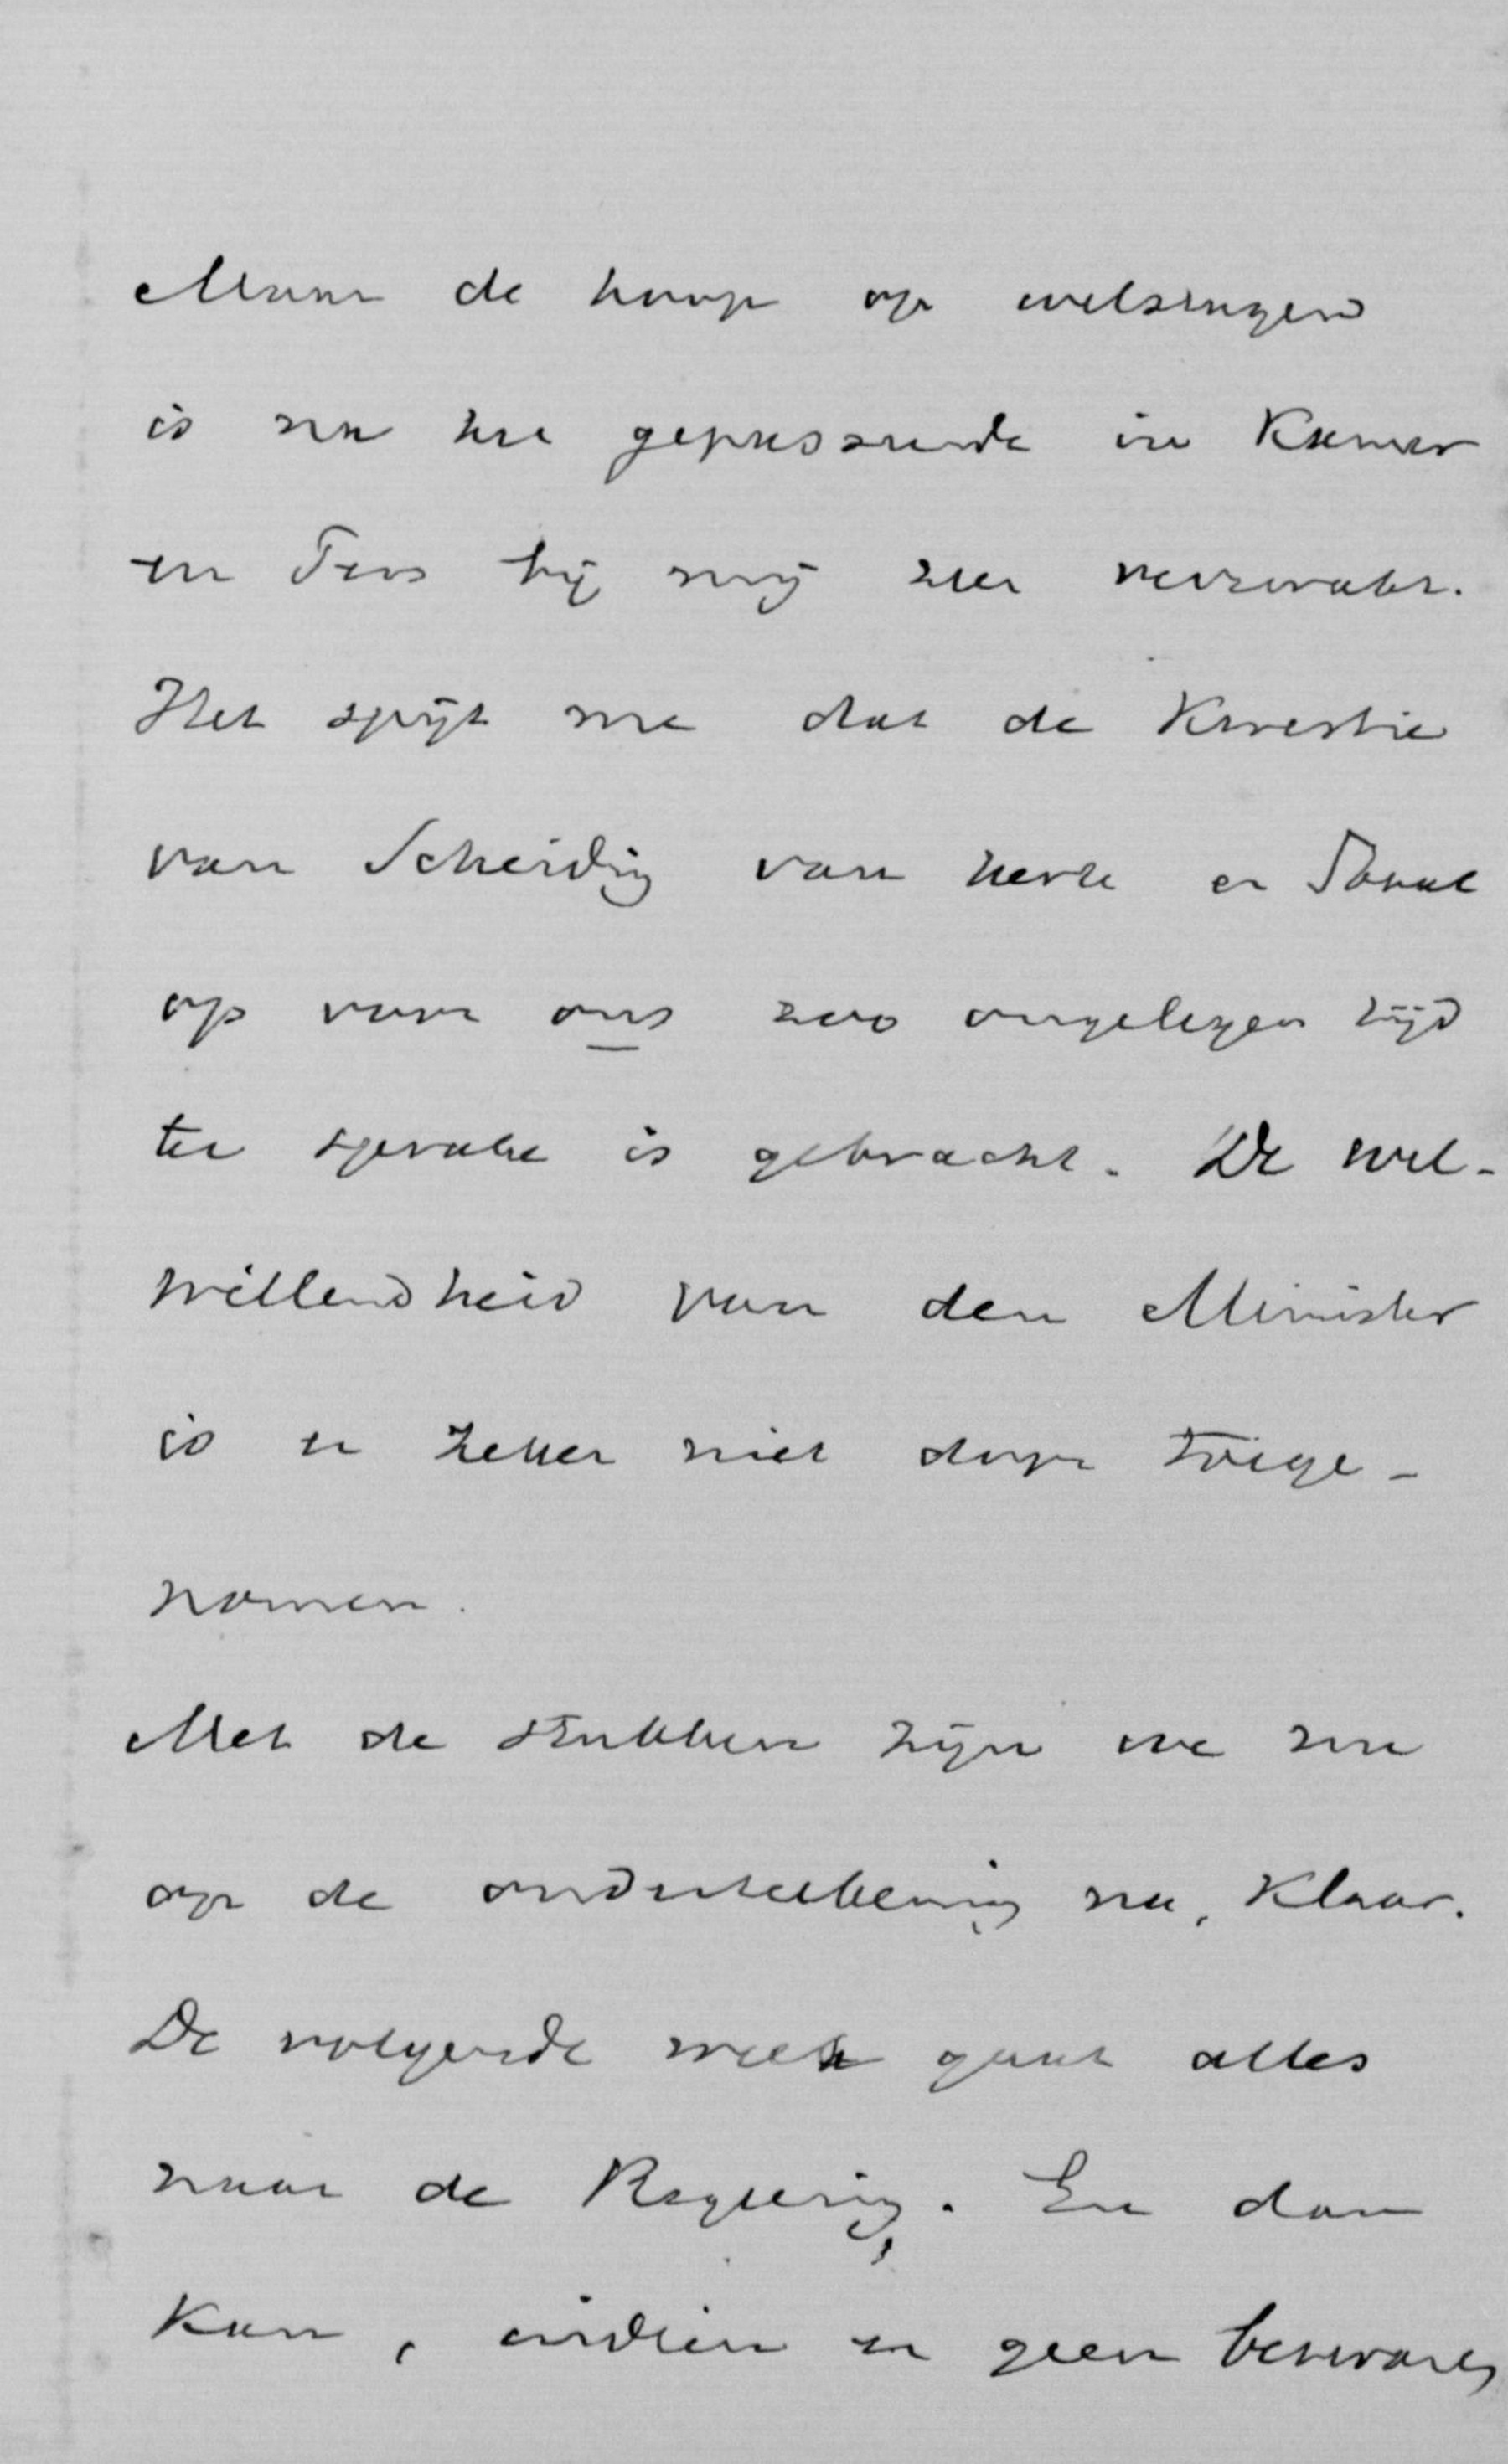 Maar de hoop op welslagen
is na het gepasseerde in Kamer
en Pers bij mij zeer verzwakt.
Het spijt me dat de Kwestie
van Scheiding van Kerk en Staat
op voor ons zoo ongelegen tijd
ter sprake is gebracht. De wel-
willendheid van den Minister
is er zeker niet door toege-
nomen.
Met de stukken zijn we nu
op de onderteekening na, Klaar.
De volgende week gaat alles
naar de Regering. En dan
Kan, indien er geen bezwaren